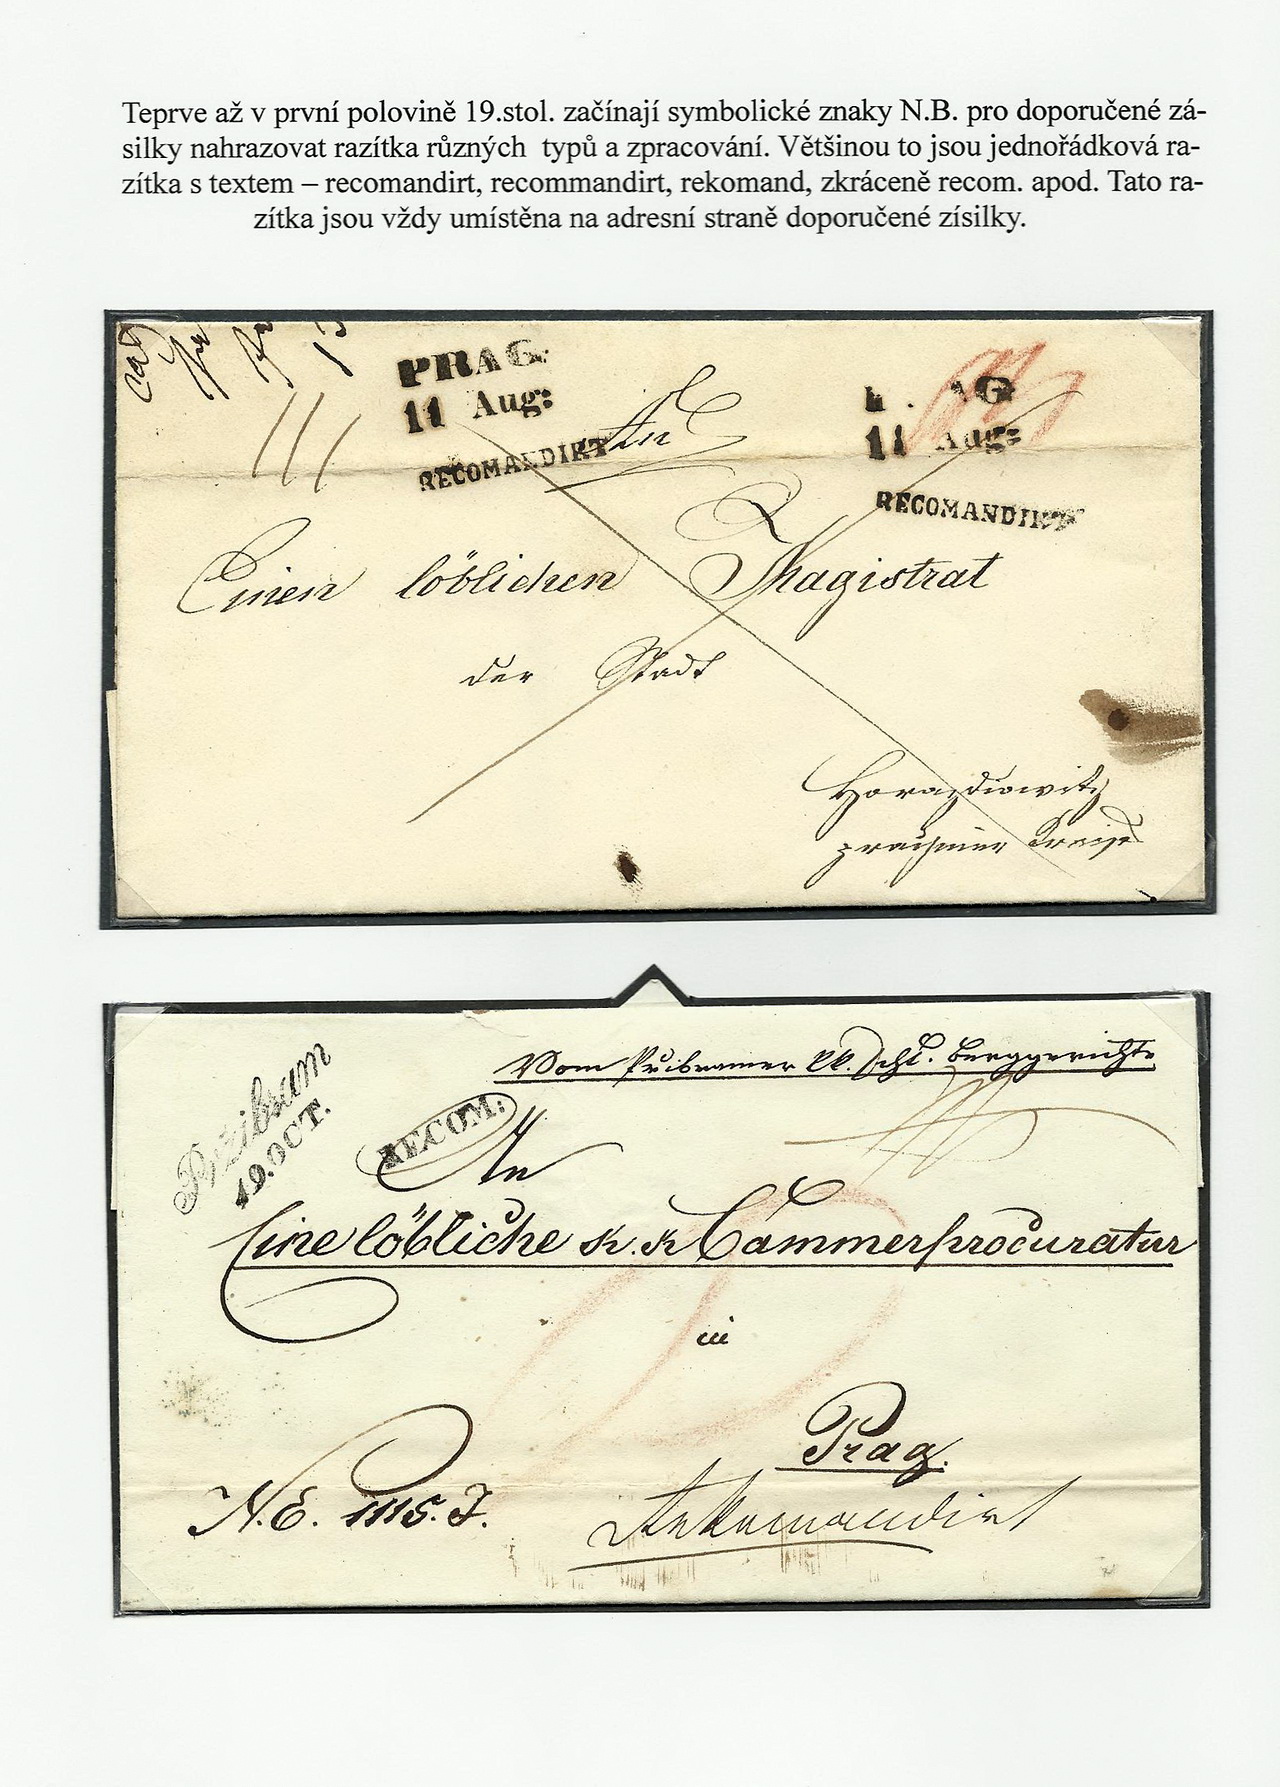 Teprve až v první polovině 19.stol. začínají symbolické znaky N.B. pro doporučené zá-
silky nahrazovat razítka různých typů a zpracování. Většinou to jsou jednořádková ra-
zítka s textem – recomandirt, recommandirt, rekomand, zkráceně recom. apod. Tato ra-
zítka jsou vždy umístěna na adresní straně doporučené zísilky.
PRAG.
11 Aug:
RECOMANDIRT
AG
11 Aug:
RECOMANDIRT
An
Einen löblichen Magistrat
der Stadt
Horazdiowitz
prachiner Kreise
Vom Pribramer kk. Berggerichte
Przibram
19. OCT.
RECOM:
An
Eine löbliche k. k Cammerprocuratur
in
Prag.
N.E. 1115. J.
Rekomandirt